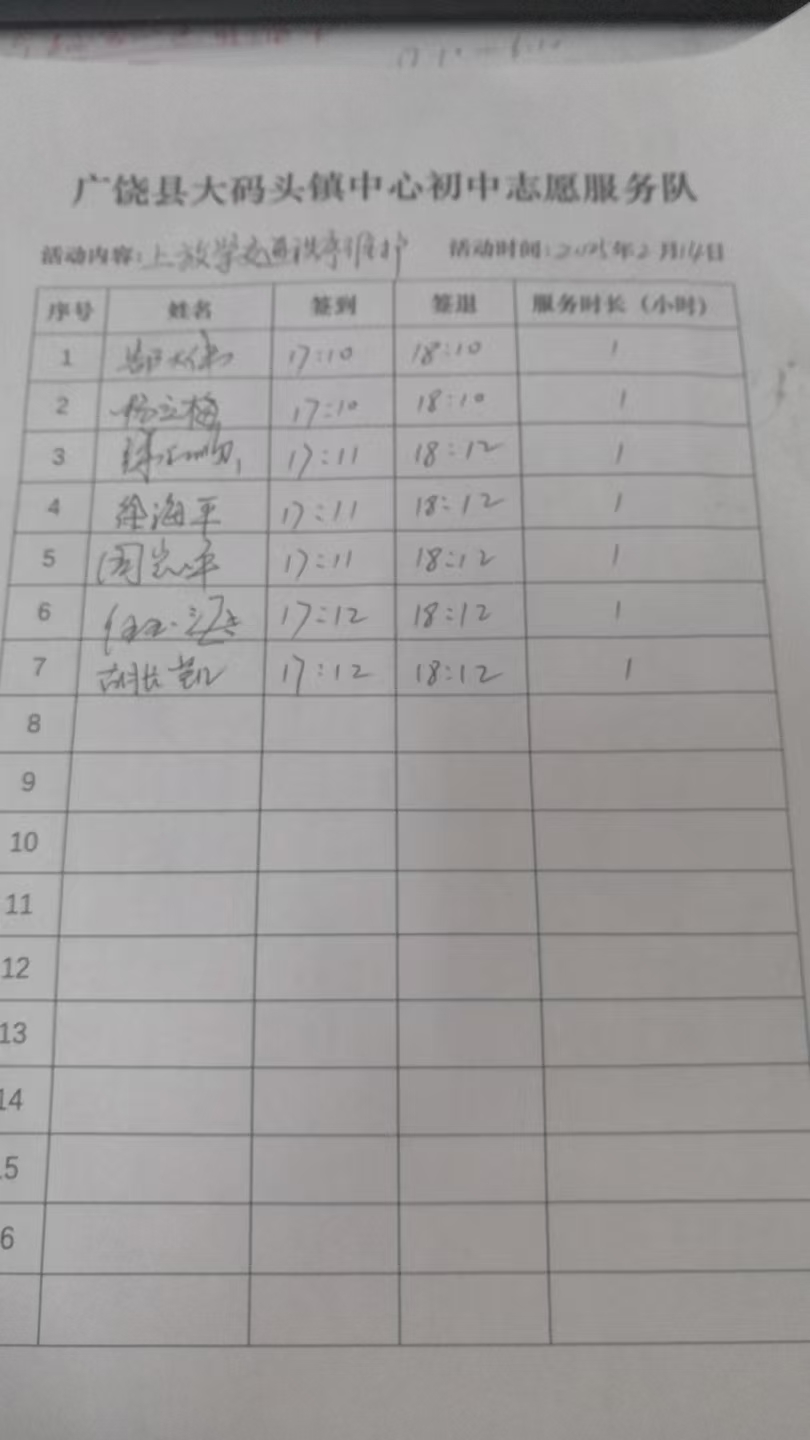 广饶县大码头镇中心初中志愿服务队
活动内容:上放学交通秩序维护 活动时间:2025年2月14日
序号 姓名 签到 签退 服务时长(小时)
1 17:10 18:10 1
2 杨立梅 17:10 18:10 1
3 17:11 18:12 1
4 徐海平 17:11 18:12 1
5 周 17:11 18:12 1
6 17:12 18:12 1
7 17:12 18:12 1
8
9
10
11
12
13
14
.5
6